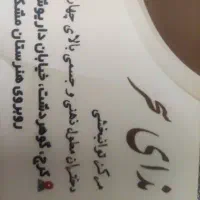 ندای سحر
مرکز توانبخشی
دختران معلول ذهنی و جسمی بالای چهار
کرج، گوهردشت، خیابان داریوش
روبروی هنرستان مشک